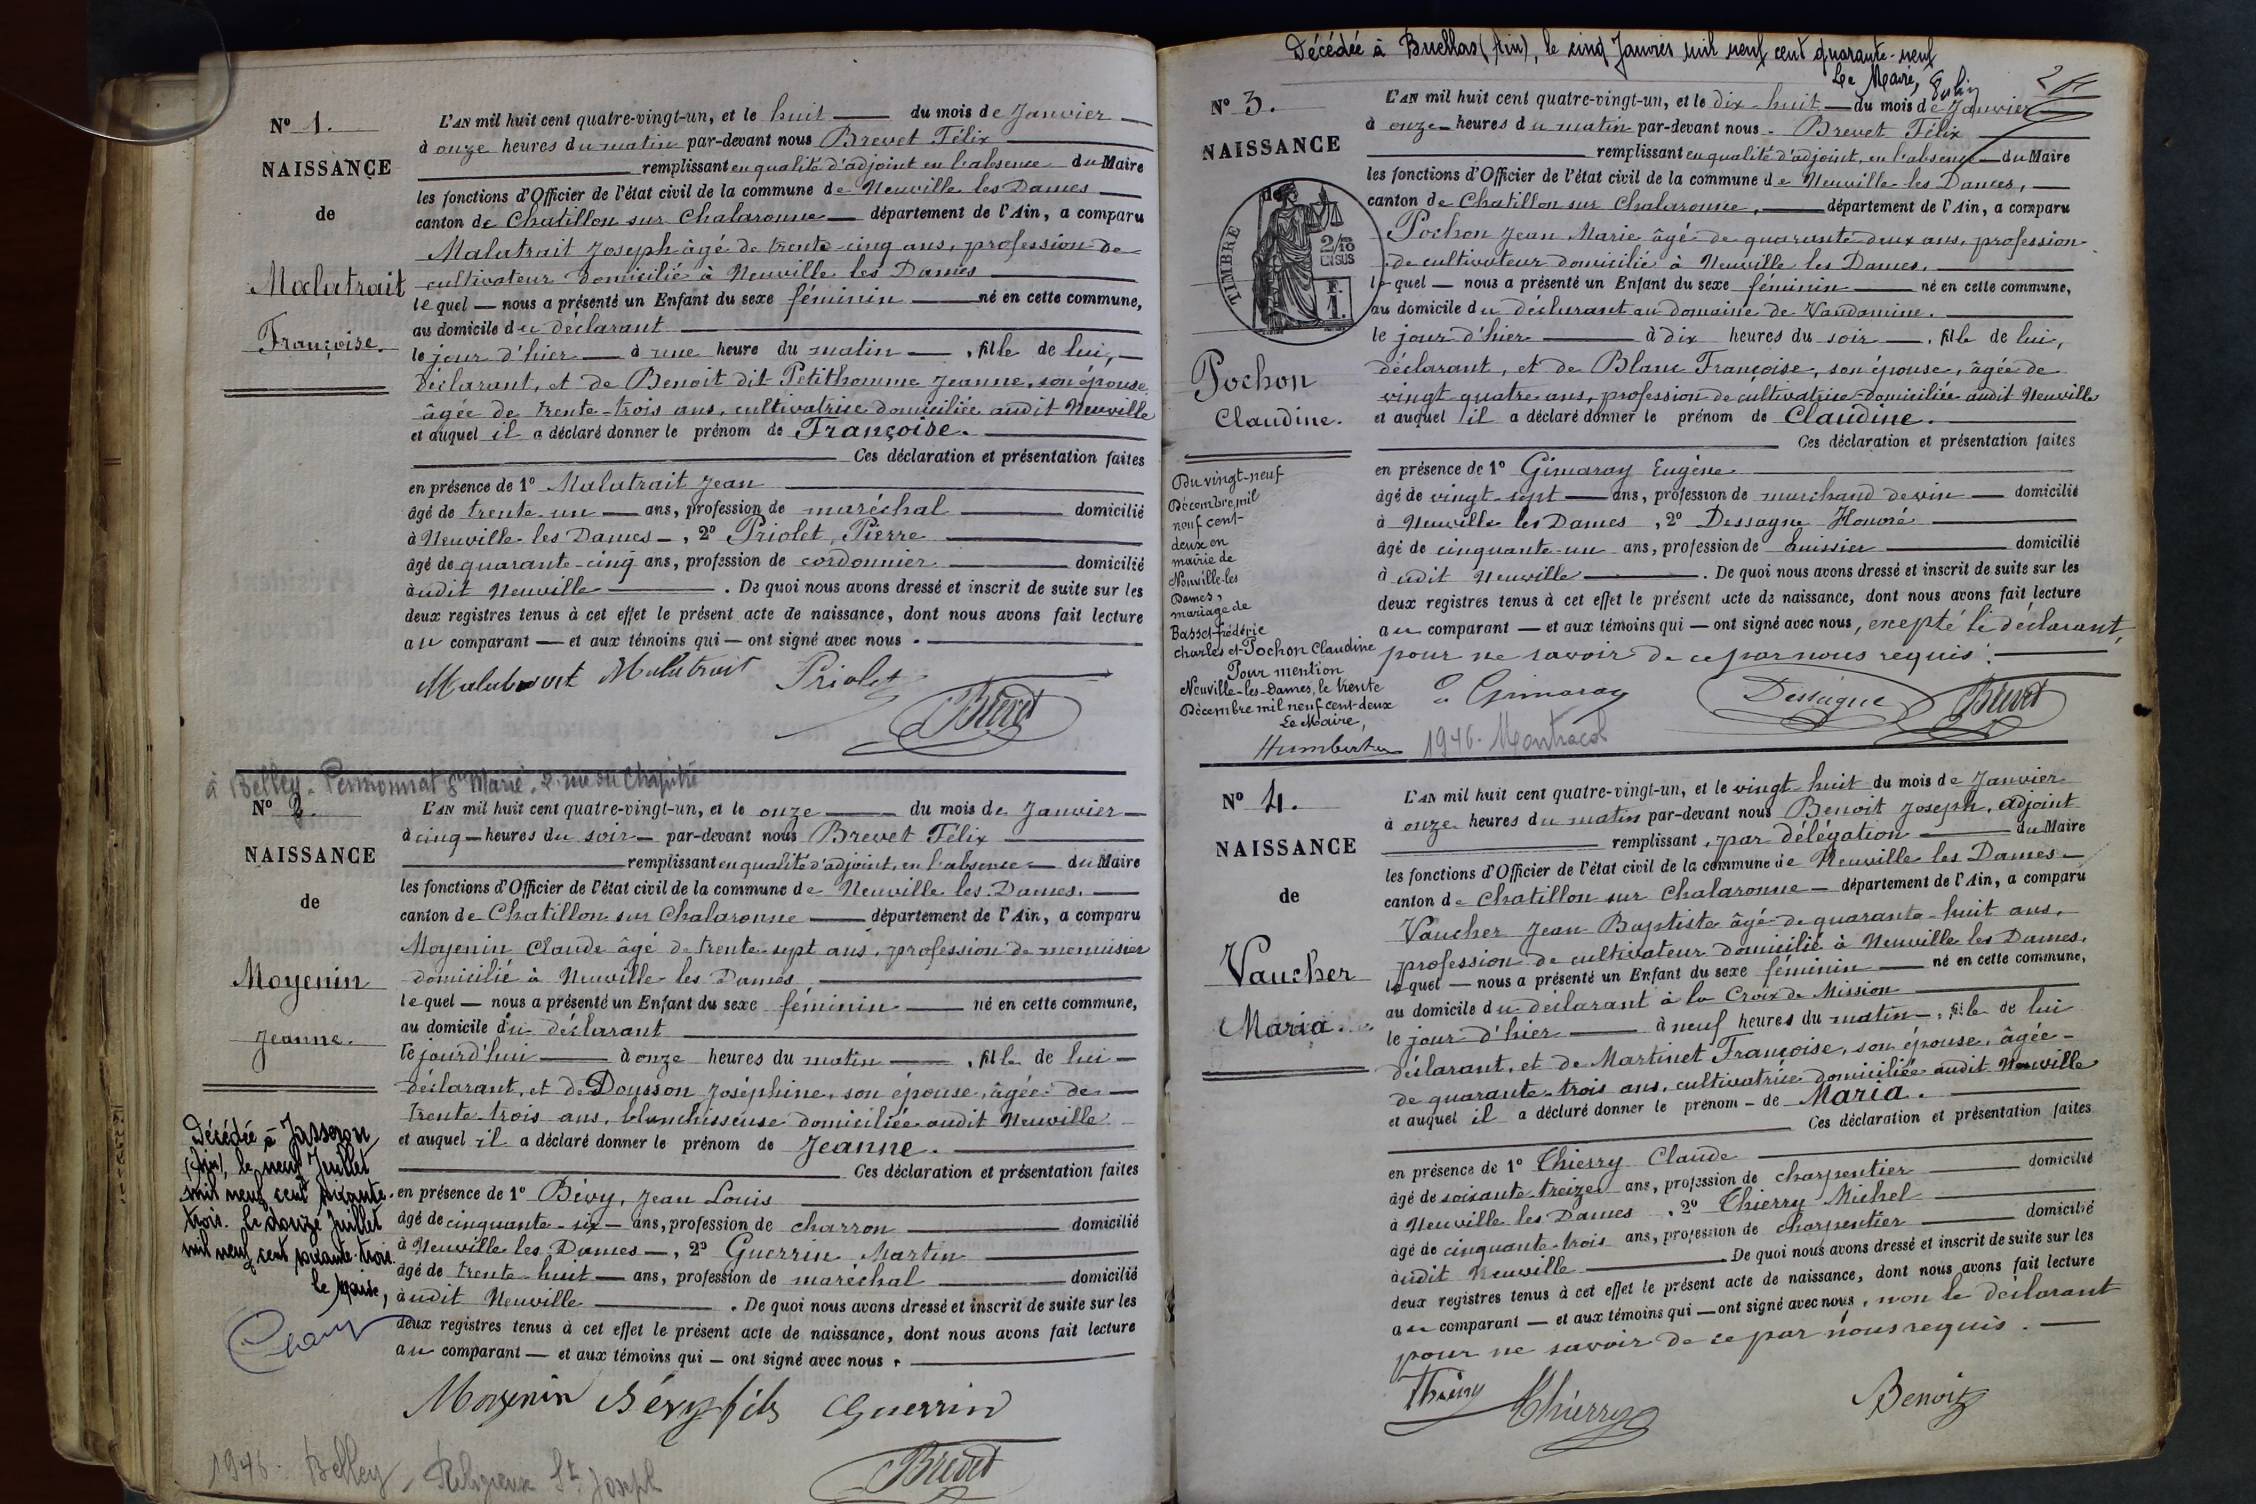 Nº 1.
NAISSANCE
de
Malatrait
Françoise.
L'AN mil huit cent quatre-vingt-un, et le huit du mois de Janvier
à onze heures du matin par-devant nous Brevet Félix
remplissant en qualité d'adjoint en l'absence du Maire
les fonctions d'Officier de l'état civil de la commune de Neuville les Dames
canton de Chatillon sur Chalaronne département de l'Ain, a comparu
Malatrait Joseph âgé de trente cinq ans, profession de
cultivateur domicilié à Neuville les Dames
lequel nous a présenté un Enfant du sexe féminin né en cette commune,
au domicile du déclarant
le jour d'hier à une heure du matin, fille de lui,
déclarant, et de Benoit dit Petithomme Jeanne, son épouse
âgée de trente-trois ans, cultivatrice domiciliée audit Neuville
et auquel il a déclaré donner le prénom de Françoise.
Ces déclaration et présentation faites
en présence de 1º Malatrait Jean
âgé de trente-un ans, profession de maréchal domicilié
à Neuville-les Dames, 2º Priolet, Pierre
âgé de quarante-cinq ans, profession de cordonnier domicilié
audit Neuville. De quoi nous avons dressé et inscrit de suite sur les
deux registres tenus à cet effet le présent acte de naissance, dont nous avons fait lecture
au comparant et aux témoins qui ont signé avec nous.
Malatrait Malatrait Priolet
Brevet
à Belley - Pensionnat Ste Marie, 2 rue du Chapitre
Nº 2.
NAISSANCE
de
Moyenin
Jeanne.
L'AN mil huit cent quatre-vingt-un, et le onze du mois de Janvier
à cinq heures du soir par-devant nous Brevet Félix
remplissant en qualité d'adjoint, en l'absence du Maire
les fonctions d'Officier de l'état civil de la commune de Neuville les Dames,
canton de Chatillon sur Chalaronne département de l'Ain, a comparu
Moyenin Claude âgé de trente-sept ans, profession de menuisier
domicilié à Neuville les Dames
lequel nous a présenté un Enfant du sexe féminin né en cette commune,
au domicile du déclarant
le jourd'hui à onze heures du matin, fille de lui
déclarant, et de Dousson Joséphine, son épouse, âgée de
trente-trois ans, blanchisseuse domiciliée audit Neuville
et auquel il a déclaré donner le prénom de Jeanne.
Ces déclaration et présentation faites
en présence de 1º Bévy, Jean Louis
âgé de cinquante-six ans, profession de charron domicilié
à Neuville les Dames, 2º Guerrin Martin
âgé de trente-huit ans, profession de maréchal domicilié
audit Neuville. De quoi nous avons dressé et inscrit de suite sur les
deux registres tenus à cet effet le présent acte de naissance, dont nous avons fait lecture
au comparant et aux témoins qui ont signé avec nous.
Décédée à Jasseron
(Ain), le neuf Juillet
mil neuf cent soixante-
trois. le douze Juillet
mil neuf cent soixante trois.
le Maire,
Moyenin Bévy fils Guerrin
Brevet
1946 - Belley - Religieuse St Joseph
Décédée à Buellas (Ain), le cinq Janvier mil neuf cent quarante-neuf
Le Maire,
Nº 3.
NAISSANCE
de
TIMBRE
2/10
EN SUS
F.
1.
Pochon
Claudine.
L'AN mil huit cent quatre-vingt-un, et le dix-huit du mois de Janvier
à onze heures du matin par-devant nous Brevet Félix
remplissant en qualité d'adjoint, en l'absence du Maire
les fonctions d'Officier de l'état civil de la commune de Neuville les Dames,
canton de Chatillon sur Chalaronne, département de l'Ain, a comparu
Pochon Jean Marie âgé de quarante deux ans, profession
de cultivateur domicilié à Neuville les Dames,
lequel nous a présenté un Enfant du sexe féminin né en cette commune,
au domicile du déclarant au domaine de Vaudomine.
le jour d'hier à dix heures du soir, fille de lui,
déclarant, et de Blanc Françoise, son épouse, âgée de
vingt-quatre ans, profession de cultivatrice domiciliée audit Neuville
et auquel il a déclaré donner le prénom de Claudine.
Ces déclaration et présentation faites
en présence de 1º Gimaray Eugène
âgé de vingt-sept ans, profession de marchand de vin domicilié
à Neuville les Dames, 2º Dessaigne Honoré
âgé de cinquante-un ans, profession de huissier domicilié
à udit Neuville. De quoi nous avons dressé et inscrit de suite sur les
deux registres tenus à cet effet le présent acte de naissance, dont nous avons fait lecture
au comparant et aux témoins qui ont signé avec nous, exepté le déclarant,
pour ne savoir de ce par nous requis.
Du vingt-neuf
Décembre mil
neuf cent-
deux en
mairie de
Neuville-les
Dames,
mariage de
Basset Frédéric
Charles et Pochon Claudine
Pour mention
Neuville-les-Dames, le trente
Décembre mil neuf cent-deux
Le Maire,
Humbert
Gimaray Dessaigne Brevet
1946 - Montracol
Nº 4.
NAISSANCE
de
Vaucher
Maria.
L'AN mil huit cent quatre-vingt-un, et le vingt huit du mois de Janvier
à onze heures du matin par-devant nous Benoit Joseph, adjoint
remplissant, par délégation du Maire
les fonctions d'Officier de l'état civil de la commune de Neuville les Dames
canton de Chatillon sur Chalaronne département de l'Ain, a comparu
Vaucher Jean-Baptiste âgé de quarante-huit ans,
profession de cultivateur domicilié à Neuville les Dames,
lequel nous a présenté un Enfant du sexe féminin né en cette commune,
au domicile du déclarant à la Croix de Mission
le jour d'hier à neuf heures du matin, fille de lui
déclarant, et de Martinet Françoise, son épouse, âgée
de quarante-trois ans, cultivatrice domiciliée audit Neuville
et auquel il a déclaré donner le prénom de Maria.
Ces déclaration et présentation faites
en présence de 1º Thierry Claude
âgé de soixante-treize ans, profession de charpentier domicilié
à Neuville les Dames, 2º Thierry Michel
âgé de cinquante-trois ans, profession de charpentier domicilié
audit Neuville De quoi nous avons dressé et inscrit de suite sur les
deux registres tenus à cet effet le présent acte de naissance, dont nous avons fait lecture
au comparant et aux témoins qui ont signé avec nous, non le déclarant
pour ne savoir de ce par nous requis.
Thierry Thierry Benoit